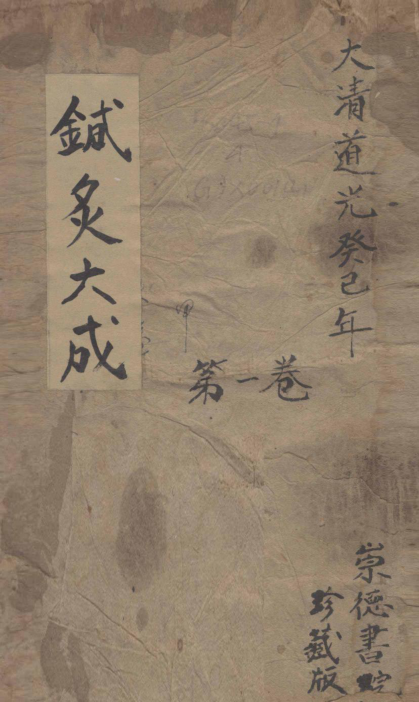 大清道光癸巳年
崇德書院
珍藏版
第一卷
鍼灸大成